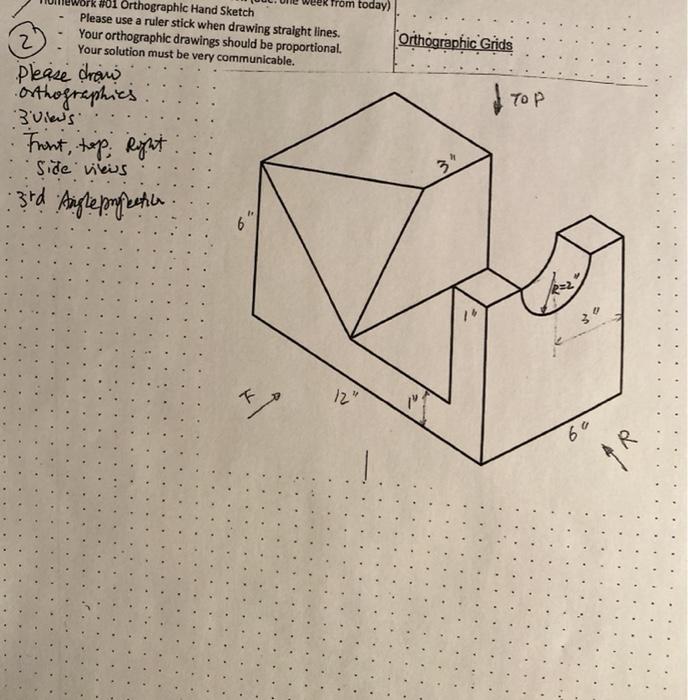 Homework #01 Orthographic Hand Sketch
one week from today)
- Please use a ruler stick when drawing straight lines.
- Your orthographic drawings should be proportional.
- Your solution must be very communicable.
Orthographic Grids
2
Please draw
orthographics
3 views
Front, top, Right
Side views
3rd Angle projection
TOP
3"
6"
R=2"
1"
3"
F
12"
1"
6"
R